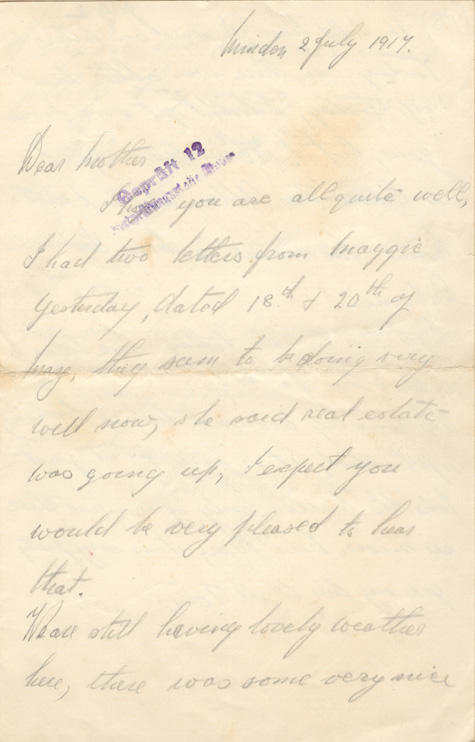 Minden 2 July 1917.
Dear Mother
Geprüft 12
I hope you are all quite well,
I had two letters from Maggie
yesterday, dated 18th & 20th of
May, they seem to be doing very
well now, she said real estate
was going up, I expect you
would be very pleased to hear
that.
We are still having lovely weather
here, there was some very nice